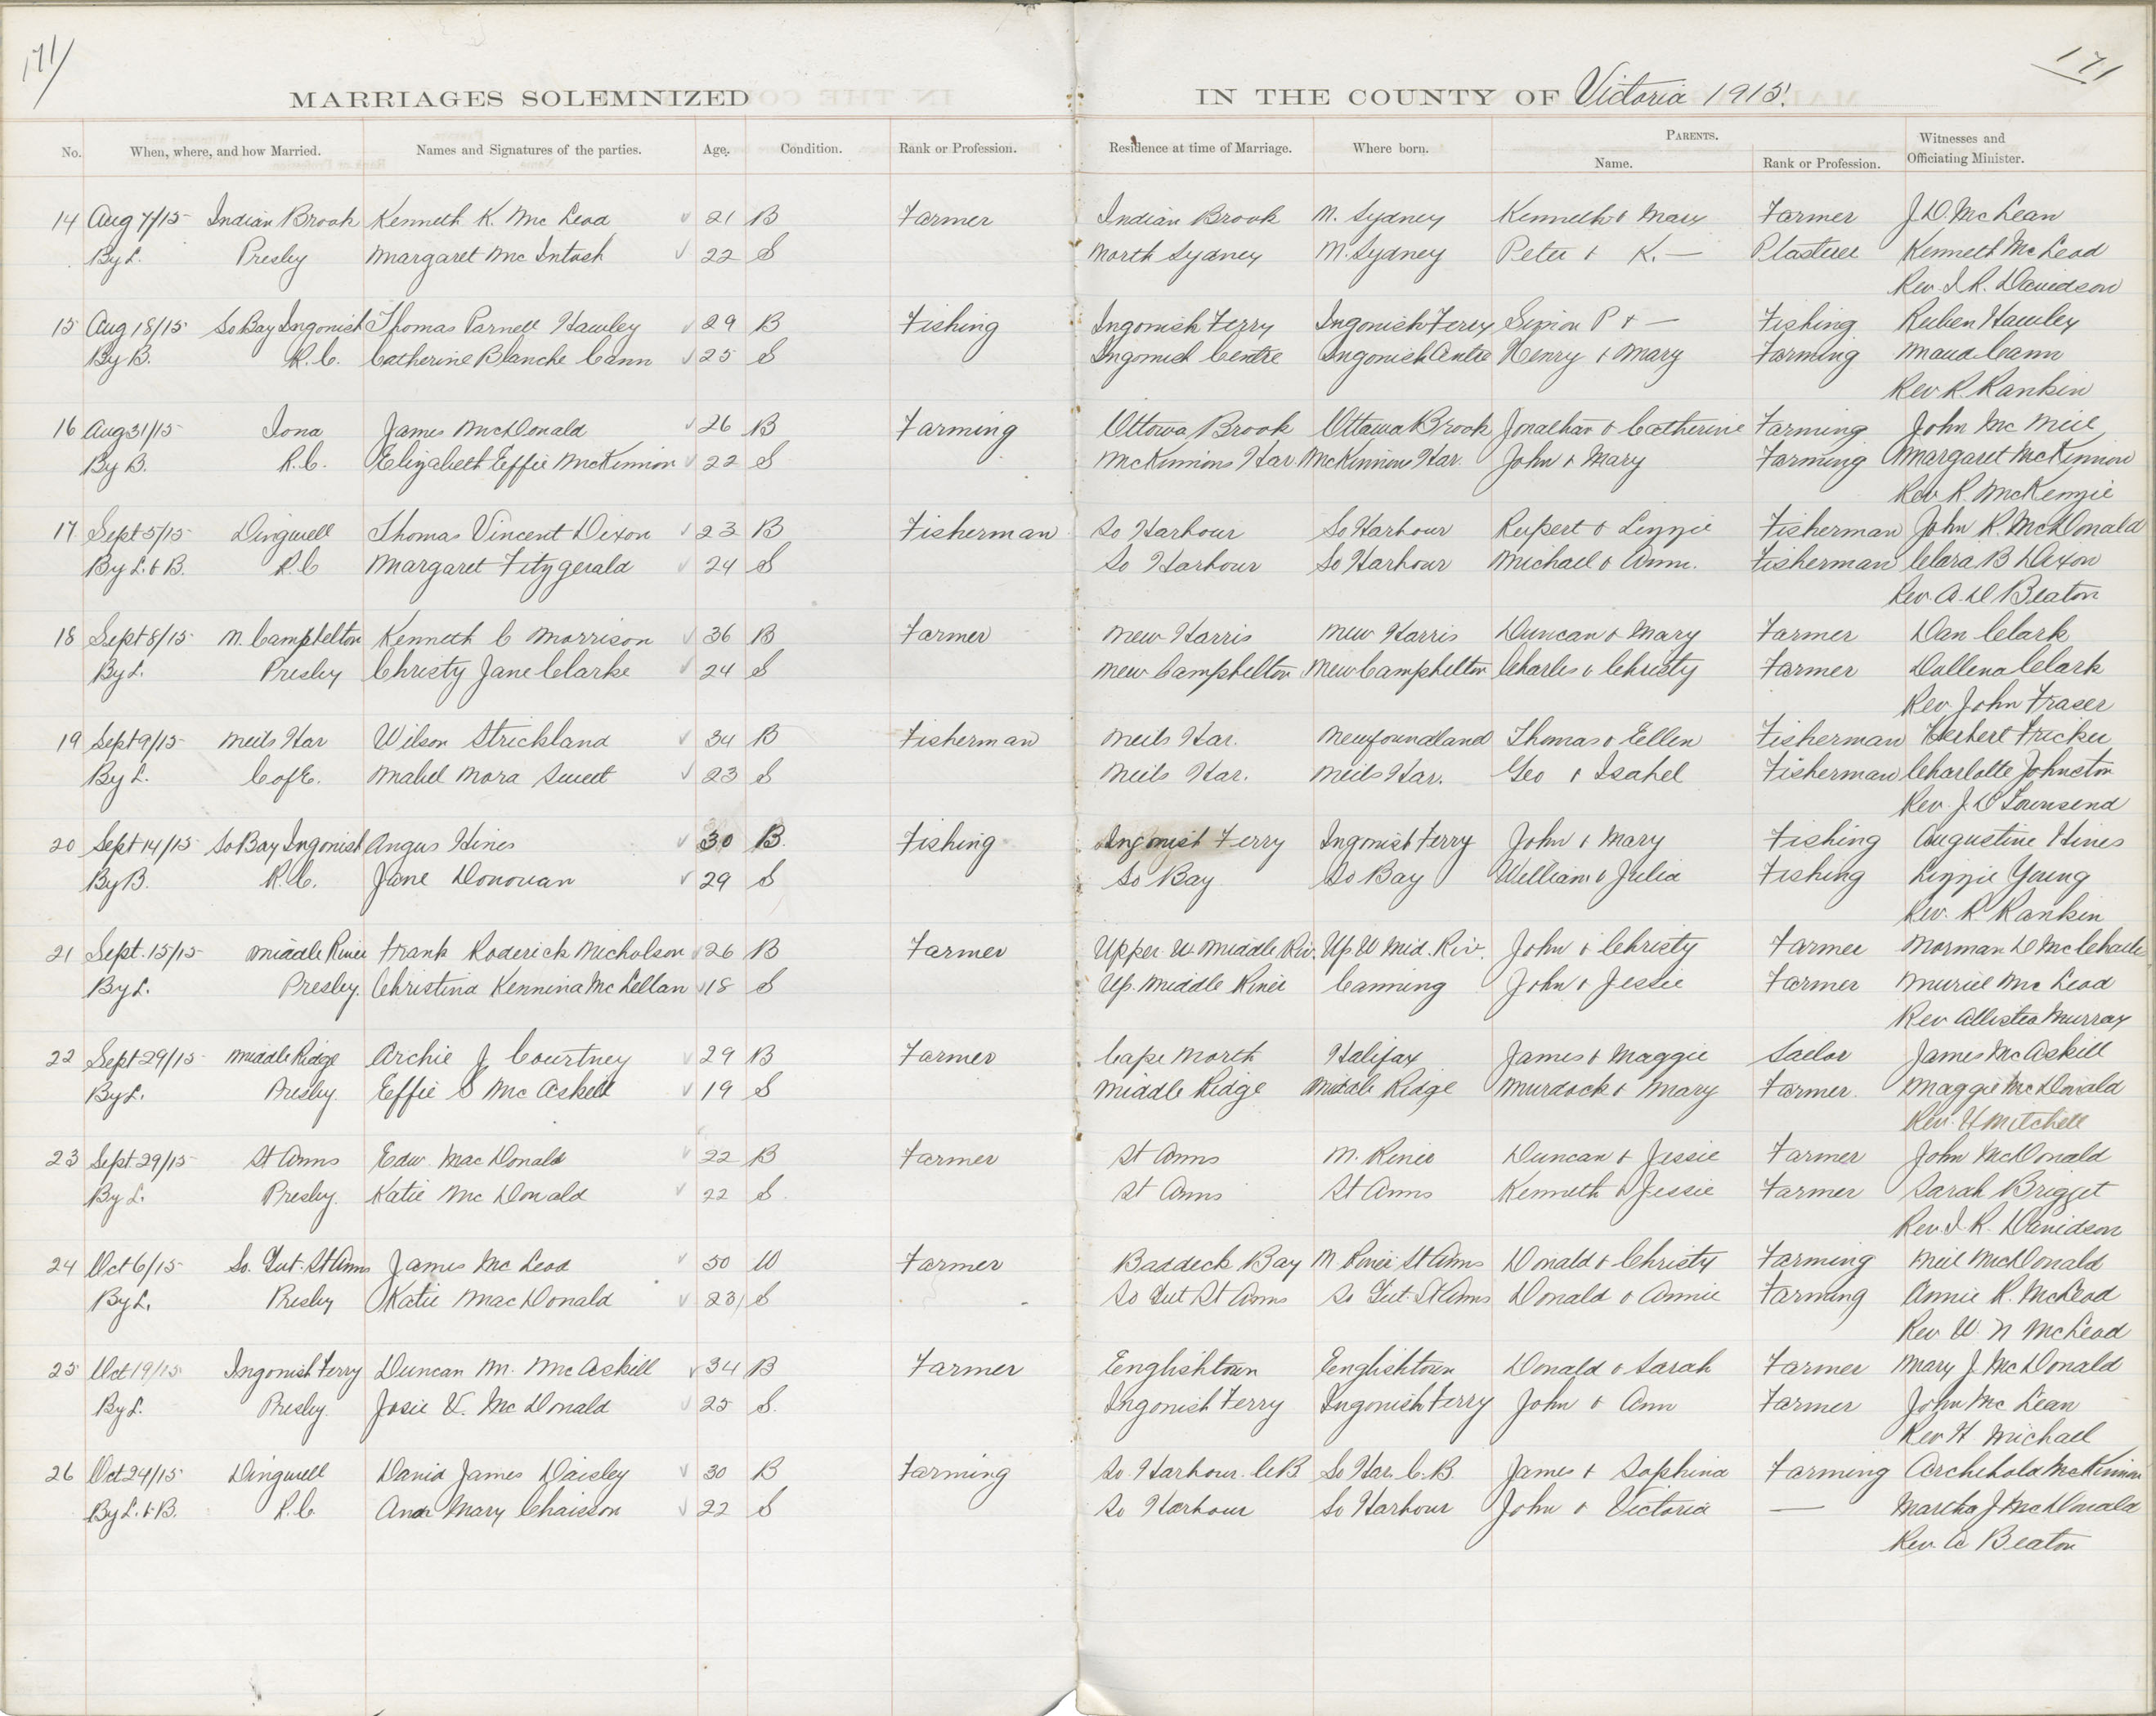 171
171
MARRIAGES SOLEMNIZED IN THE COUNTY OF Victoria 1915.
No. When, where, and how Married. Names and Signatures of the parties. Age. Condition. Rank or Profession. Residence at time of Marriage. Where born. PARENTS. Name. Rank or Profession. Witnesses and Officiating Minister.
14 Aug 7/15 Indian Brook Kenneth K. Mc Leod 21 B Farmer Indian Brook N. Sydney Kenneth & Mary Farmer J.D. McLean
By L. Presby Margaret Mc Intosh 22 S North Sydney N. Sydney Peter & K. — Plasterer Kenneth McLeod
Rev. I. R. Davidson
15 Aug 18/15 So Bay Ingonish Thomas Parnell Hawley 29 B Fishing Ingonish Ferry Ingonish Ferry Simon P & — Fishing Ruben Hawley
By B. R.C. Catherine Blanche Cann 25 S Ingonish Centre Ingonish Centre Henry & Mary Farming Maud Cann
Rev R. Rankin
16 Aug 31/15 Iona James McDonald 26 B Farming Ottowa Brook Ottawa Brook Jonathan & Catherine Farming John Mc Neil
By B. R.C. Elizabeth Effie McKinnon 22 S McKinnons Har McKinnons Har. John & Mary Farming Margaret McKinnon
Rev R. McKenzie
17 Sept 5/15 Dingwell Thomas Vincent Dixon 23 B Fisherman So Harbour So Harbour Rupert & Lizzie Fisherman John R. McDonald
By L. & B. R.C Margaret Fitzgerald 24 S So Harbour So Harbour Michael & Ann. Fisherman Clara B Dixon
Rev. A. D Beaton
18 Sept 8/15 N. Campbelton Kenneth C Morrison 36 B Farmer New Harris New Harris Duncan & Mary Farmer Dan Clark
By L. Presby Christy Jane Clarke 24 S New Campbelton New Campbelton Charles & Christy Farmer Dollena Clark
Rev. John Fraser
19 Sept 9/15 Neils Har Wilson Strickland 34 B Fisherman Neils Har. Newfoundland Thomas & Ellen Fisherman Herbert Fricker
By L. C of E. Mabel Nora Sweet 23 S Neils Har. Neils Har. Geo & Isabel Fisherman Charlotte Johnston
Rev. J. D Townsend
20 Sept 14/15 So Bay Ingonish Angus Hines 30 B. Fishing Ingonish Ferry Ingonish Ferry John & Mary Fishing Augustine Hines
By B. R.C. Jane Donovan 29 S So Bay So Bay William & Julia Fishing Lizzie Young
Rev. R. Rankin
21 Sept. 15/15 Middle River Frank Roderick Nicholson 26 B Farmer Upper W Middle Riv. Up W Mid. Riv. John & Christy Farmer Norman D McLehade
By L. Presby. Christina Kennina McLellan 18 S Up. Middle River Canning John & Jessie Farmer Muriel Mc Leod
Rev Allister Murray
22 Sept 29/15 Middle Ridge Archie J Courtney 29 B Farmer Cape North Halifax James & Maggie Sailor James McAskill
By L. Presby. Effie S Mc Askill 19 S Middle Ridge Middle Ridge Murdock & Mary Farmer. Maggie McDonald
Rev. H Mitchell
23 Sept 29/15 St Anns Edw. MacDonald 22 B Farmer St Anns N. River Duncan & Jessie Farmer John McDonald
By L. Presby. Katie McDonald 22 S. St Anns St Anns Kenneth & Jessie Farmer Sarah Brigget
Rev. I. R. Davidson
24 Oct 6/15 So. Gut. St Anns James McLeod 50 W Farmer Baddeck Bay N. River St Anns Donald & Christy Farming Neil McDonald
By L. Presby Katie MacDonald 23 S So Gut St Anns So Gut St Anns Donald & Annie Farming Annie R. McLeod
Rev W. N McLeod
25 Oct 19/15 Ingonish Ferry Duncan M. McAskill 34 B Farmer Englishtown Englishtown Donald & Sarah Farmer Mary J. McDonald
By L. Presby. Josie V. McDonald 25 S. Ingonish Ferry Ingonish Ferry John & Ann Farmer John McLean
Rev H Michael
26 Oct 24/15 Dingwell David James Daisley 30 B Farming So. Harbour. C.B So Har. C.B. James & Sophina Farming Archibald McKinnon
By L. & B. R.C. Ann Mary Chaisson 22 S So Harbour So Harbour John & Victoria — Martha J McDonald
Rev. A Beaton